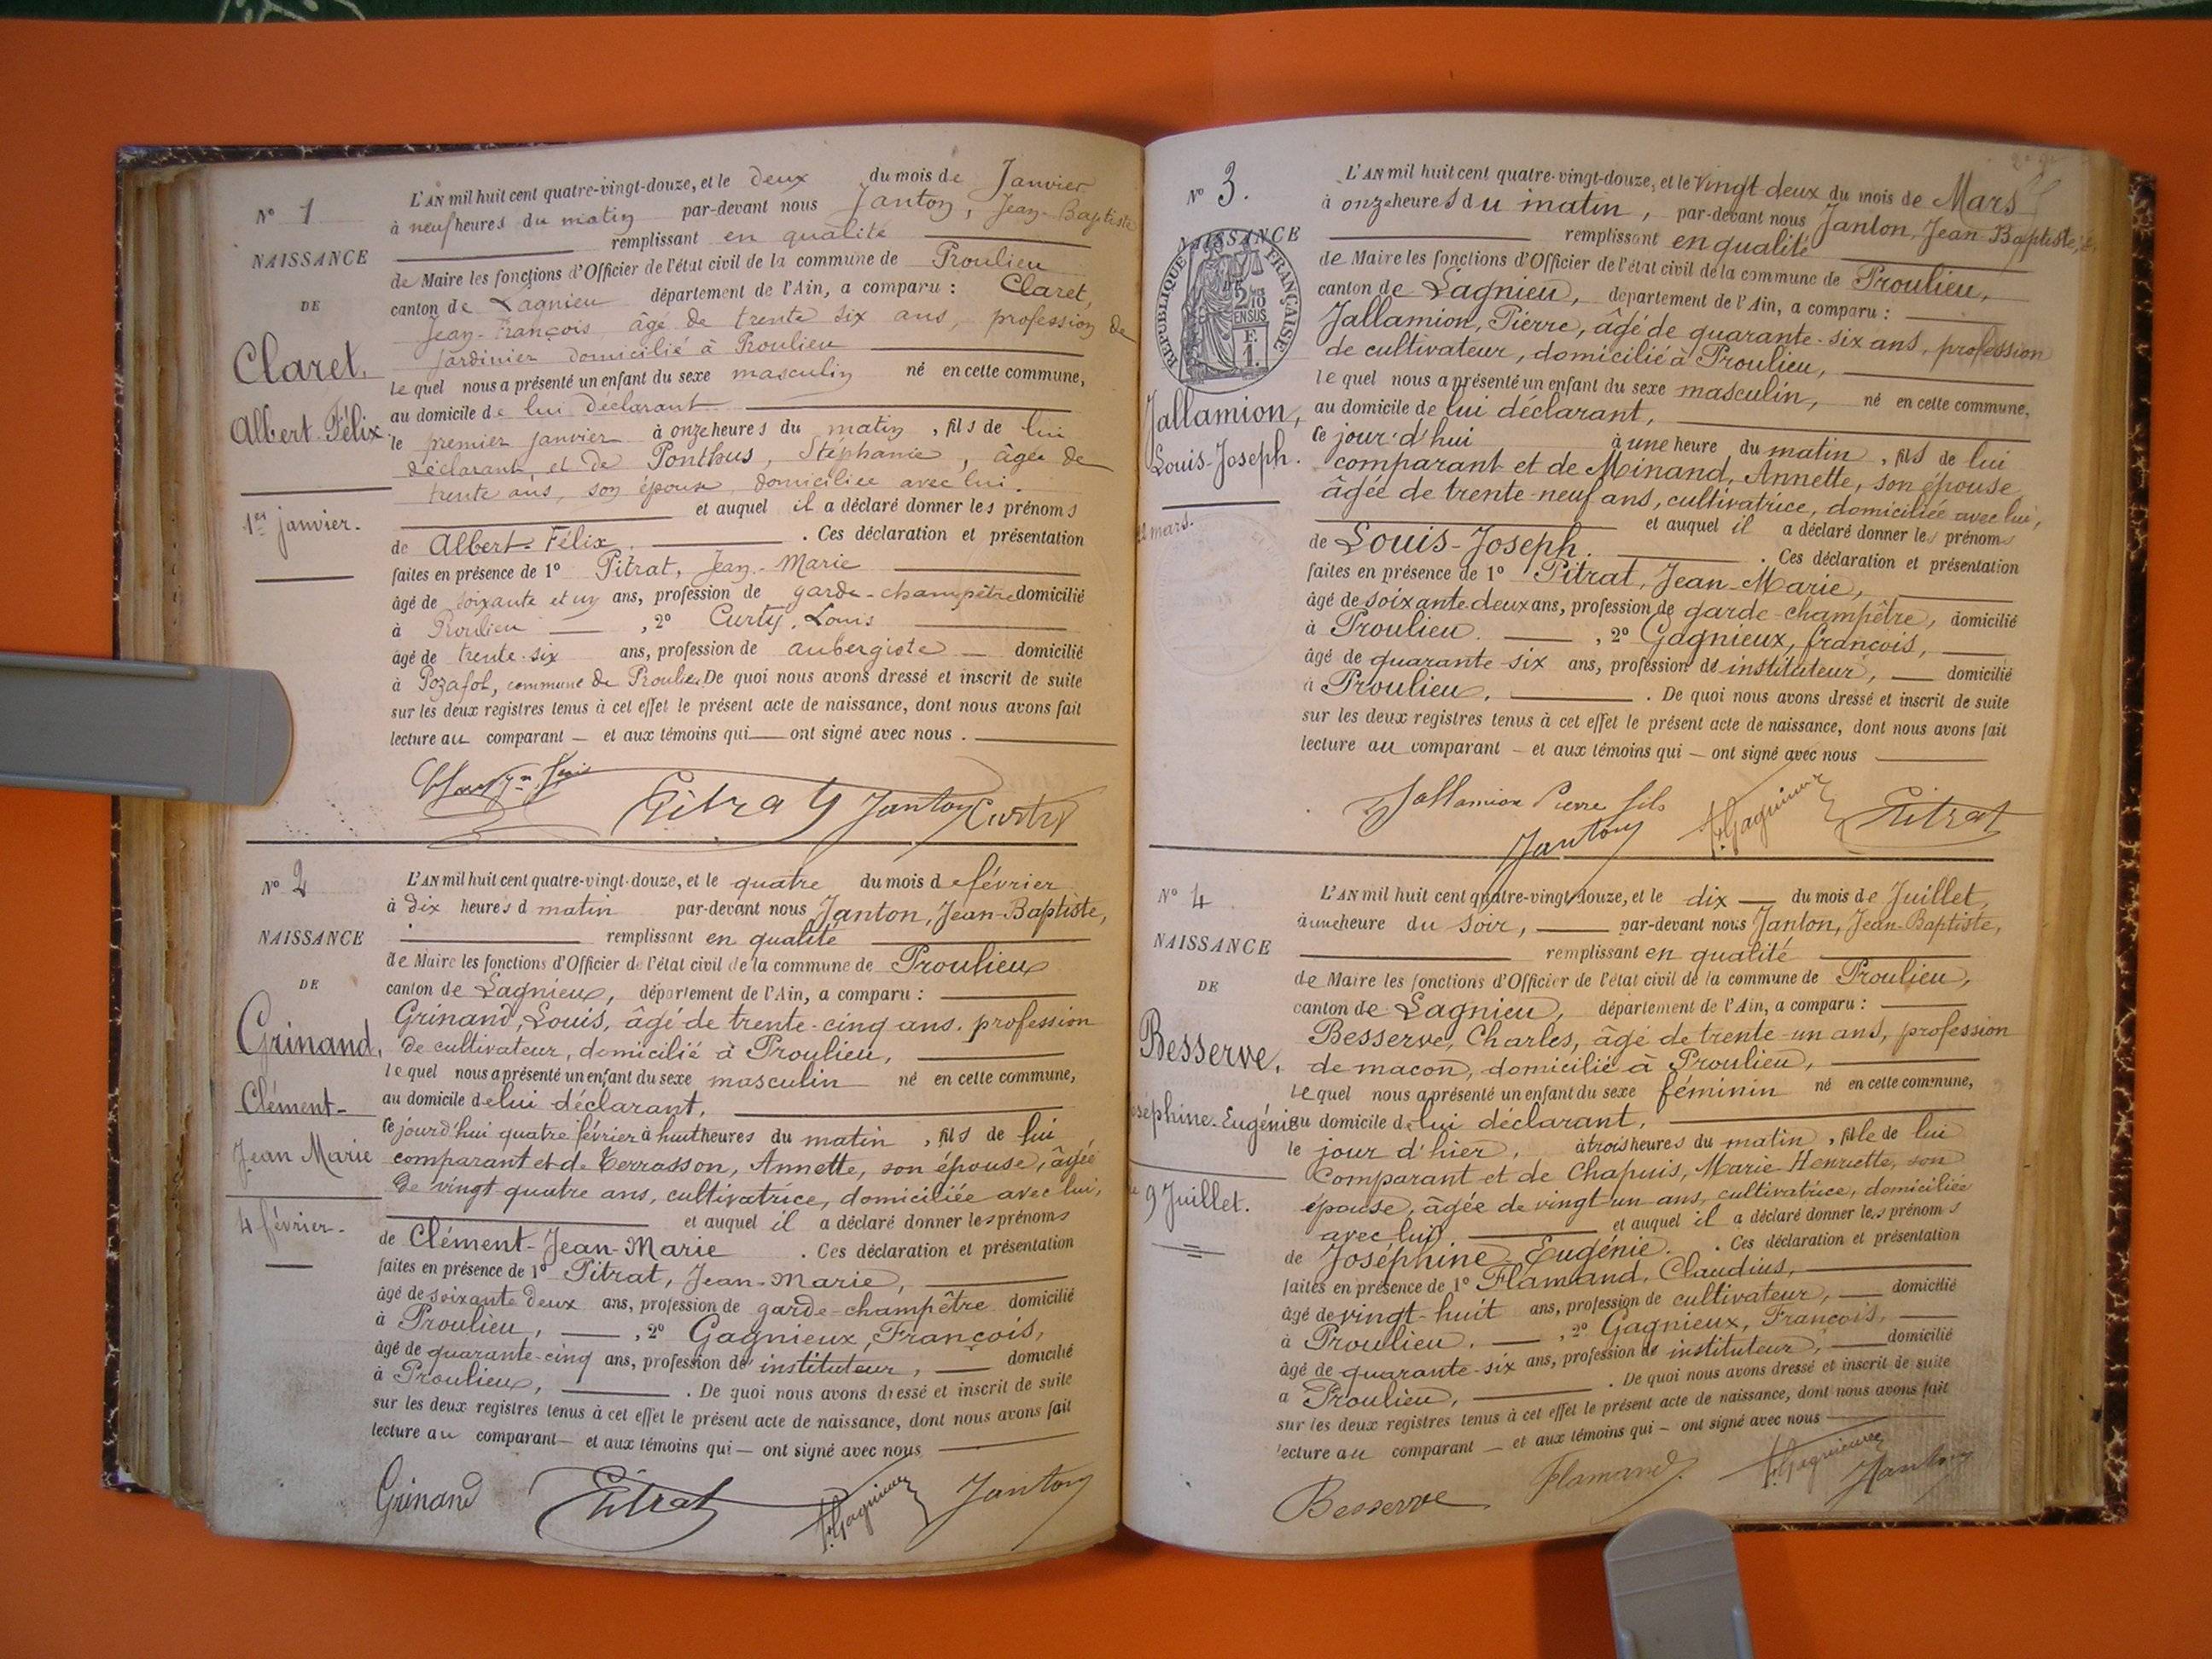 N° 1
NAISSANCE
DE
Claret,
Albert-Félix
1er janvier.
L'AN mil huit cent quatre-vingt-douze, et le deux du mois de Janvier
à neuf heures du matin par-devant nous Janton, Jean-Baptiste
remplissant en qualité
de Maire les fonctions d'Officier de l'état civil de la commune de Proulieu
canton de Lagnieu département de l'Ain, a comparu : Claret,
Jean-François âgé de trente six ans, profession de
jardinier domicilié à Proulieu
le quel nous a présenté un enfant du sexe masculin né en cette commune,
au domicile de lui déclarant
le premier janvier à onze heures du matin, fils de lui
déclarant et de Ponthus, Stéphanie, âgée de
trente ans, son épouse, domiciliée avec lui.
et auquel il a déclaré donner les prénoms
de Albert-Félix. Ces déclaration et présentation
faites en présence de 1° Pitrat, Jean-Marie
âgé de soixante et un ans, profession de garde-champêtre domicilié
à Proulieu, 2° Curty, Louis
âgé de trente-six ans, profession de aubergiste domicilié
à Pozafol, commune de Proulieu De quoi nous avons dressé et inscrit de suite
sur les deux registres tenus à cet effet le présent acte de naissance, dont nous avons fait
lecture au comparant — et aux témoins qui — ont signé avec nous.
Pitrat Janton Curty
N° 2
NAISSANCE
DE
Grinand,
Clément-
Jean Marie
4 février.
L'AN mil huit cent quatre-vingt-douze, et le quatre du mois de février
à dix heures d matin par-devant nous Janton, Jean-Baptiste,
remplissant en qualité
de Maire les fonctions d'Officier de l'état civil de la commune de Proulieu
canton de Lagnieu, département de l'Ain, a comparu :
Grinand, Louis, âgé de trente-cinq ans, profession
de cultivateur, domicilié à Proulieu,
le quel nous a présenté un enfant du sexe masculin né en cette commune,
au domicile de lui déclarant,
ce jourd'hui quatre février à huit heures du matin, fils de lui
comparant et de Terrasson, Annette, son épouse, âgée
de vingt quatre ans, cultivatrice, domiciliée avec lui,
et auquel il a déclaré donner les prénoms
de Clément-Jean-Marie. Ces déclaration et présentation
faites en présence de 1° Pitrat, Jean-Marie,
âgé de soixante deux ans, profession de garde-champêtre domicilié
à Proulieu, 2° Gagnieux, François,
âgé de quarante-cinq ans, profession de instituteur, domicilié
à Proulieu, . De quoi nous avons dressé et inscrit de suite
sur les deux registres tenus à cet effet le présent acte de naissance, dont nous avons fait
lecture au comparant — et aux témoins qui — ont signé avec nous
Grinand Pitrat F. Gagnieux Janton
N° 3.
NAISSANCE
DE
RÉPUBLIQUE FRANÇAISE
Jallamion,
Louis-Joseph.
22 mars.
L'AN mil huit cent quatre-vingt-douze, et le vingt deux du mois de Mars
à onze heures du matin, par-devant nous Janton, Jean Baptiste,
remplissant en qualité
de Maire les fonctions d'Officier de l'état civil de la commune de Proulieu,
canton de Lagnieu, département de l'Ain, a comparu :
Jallamion, Pierre, âgé de quarante-six ans, profession
de cultivateur, domicilié à Proulieu,
le quel nous a présenté un enfant du sexe masculin, né en cette commune,
au domicile de lui déclarant,
ce jour d'hui à une heure du matin, fils de lui
comparant et de Minand, Annette, son épouse
âgée de trente-neuf ans, cultivatrice, domiciliée avec lui,
et auquel il a déclaré donner les prénoms
de Louis-Joseph. Ces déclaration et présentation
faites en présence de 1° Pitrat, Jean-Marie,
âgé de soixante deux ans, profession de garde-champêtre, domicilié
à Proulieu. , 2° Gagnieux, françois,
âgé de quarante-six ans, profession de instituteur, domicilié
à Proulieu, . De quoi nous avons dressé et inscrit de suite
sur les deux registres tenus à cet effet le présent acte de naissance, dont nous avons fait
lecture au comparant — et aux témoins qui — ont signé avec nous
Jallamion Pierre fils Janton F. Gagnieux Pitrat
N° 4
NAISSANCE
DE
Besserve,
Joséphine-Eugénie
9 Juillet.
L'AN mil huit cent quatre-vingt-douze, et le dix du mois de Juillet,
à une heure du soir, par-devant nous Janton, Jean-Baptiste,
remplissant en qualité
de Maire les fonctions d'Officier de l'état civil de la commune de Proulieu,
canton de Lagnieu, département de l'Ain, a comparu :
Besserve, Charles, âgé de trente-un ans, profession
de maçon, domicilié à Proulieu,
le quel nous a présenté un enfant du sexe féminin né en cette commune,
au domicile de lui déclarant,
le jour d'hier, à trois heures du matin, fille de lui
comparant et de Chapuis, Marie-Henriette, son
épouse, âgée de vingt-un ans, cultivatrice, domiciliée
avec lui, et auquel il a déclaré donner les prénoms
de Joséphine Eugénie. Ces déclaration et présentation
faites en présence de 1° Flamand, Claudius,
âgé de vingt-huit ans, profession de cultivateur, domicilié
à Proulieu. , 2° Gagnieux, François,
âgé de quarante-six ans, profession de instituteur, domicilié
a Proulieu, . De quoi nous avons dressé et inscrit de suite
sur les deux registres tenus à cet effet le présent acte de naissance, dont nous avons fait
lecture au comparant — et aux témoins qui — ont signé avec nous
Besserve Flamand. F. Gagnieux Janton